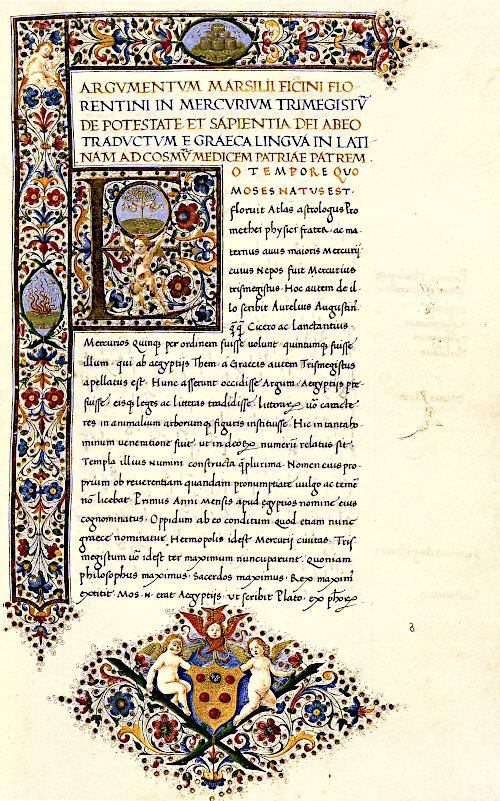 ARGVMENTVM MARSILII FICINI FLO
RENTINI IN MERCVRIVM TRIMEGISTṼ
DE POTESTATE ET SAPIENTIA DEI AB EO
TRADVCTVM E GRAECA LINGVA IN LATI
NAM AD COSMṼ MEDICEM PATRIAE PATREM.
E
O TEMPORE QVO
MOSES NATVS EST.
floruit Atlas astrologus Pro
methei physici frater. ac ma
ternus auus maioris Mercurij
cuius Nepos fuit Mercurius
trismegistus. Hoc autem de il
lo scribit Aurelius Augustin.
q̃q̃ Cicero ac Lanctantius
Mercurios Quinq; per ordinem fuisse uolunt. quintumq; fuisse
illum. qui ab aegyptijs Them. a Graecis autem Trismegistus
apellatus est. Hunc asserunt occidisse Argum. Aegyptijs pre
fuisse. eisq; leges ac litteras tradidisse. litterarꝝ uõ caracte
res in animalium arborumq; figuris instituisse. Hic in tanta ho
minum ueneratione fuit. ut in deoꝝ numerũ relatus sit.
Templa illius Numini constructa q̃plurima. Nomen eius pro
prium ob reuerentiam quandam pronumptiare uulgo ac temere
nõ licebat. Primus Anni Mensis apud egyptios nomine eius
cognominatus. Oppidum ab eo conditum quod etiam nunc
graece nominatur Hermopolis idest Mercurij ciuitas. Tris
megistum uõ idest ter maximum nuncuparunt. quoniam
philosophus maximus. Sacerdos maximus. Rex maxim'
extitit. Mos .N. erat Aegyptijs. ut scribit Plato. ex ph'oꝝ
3